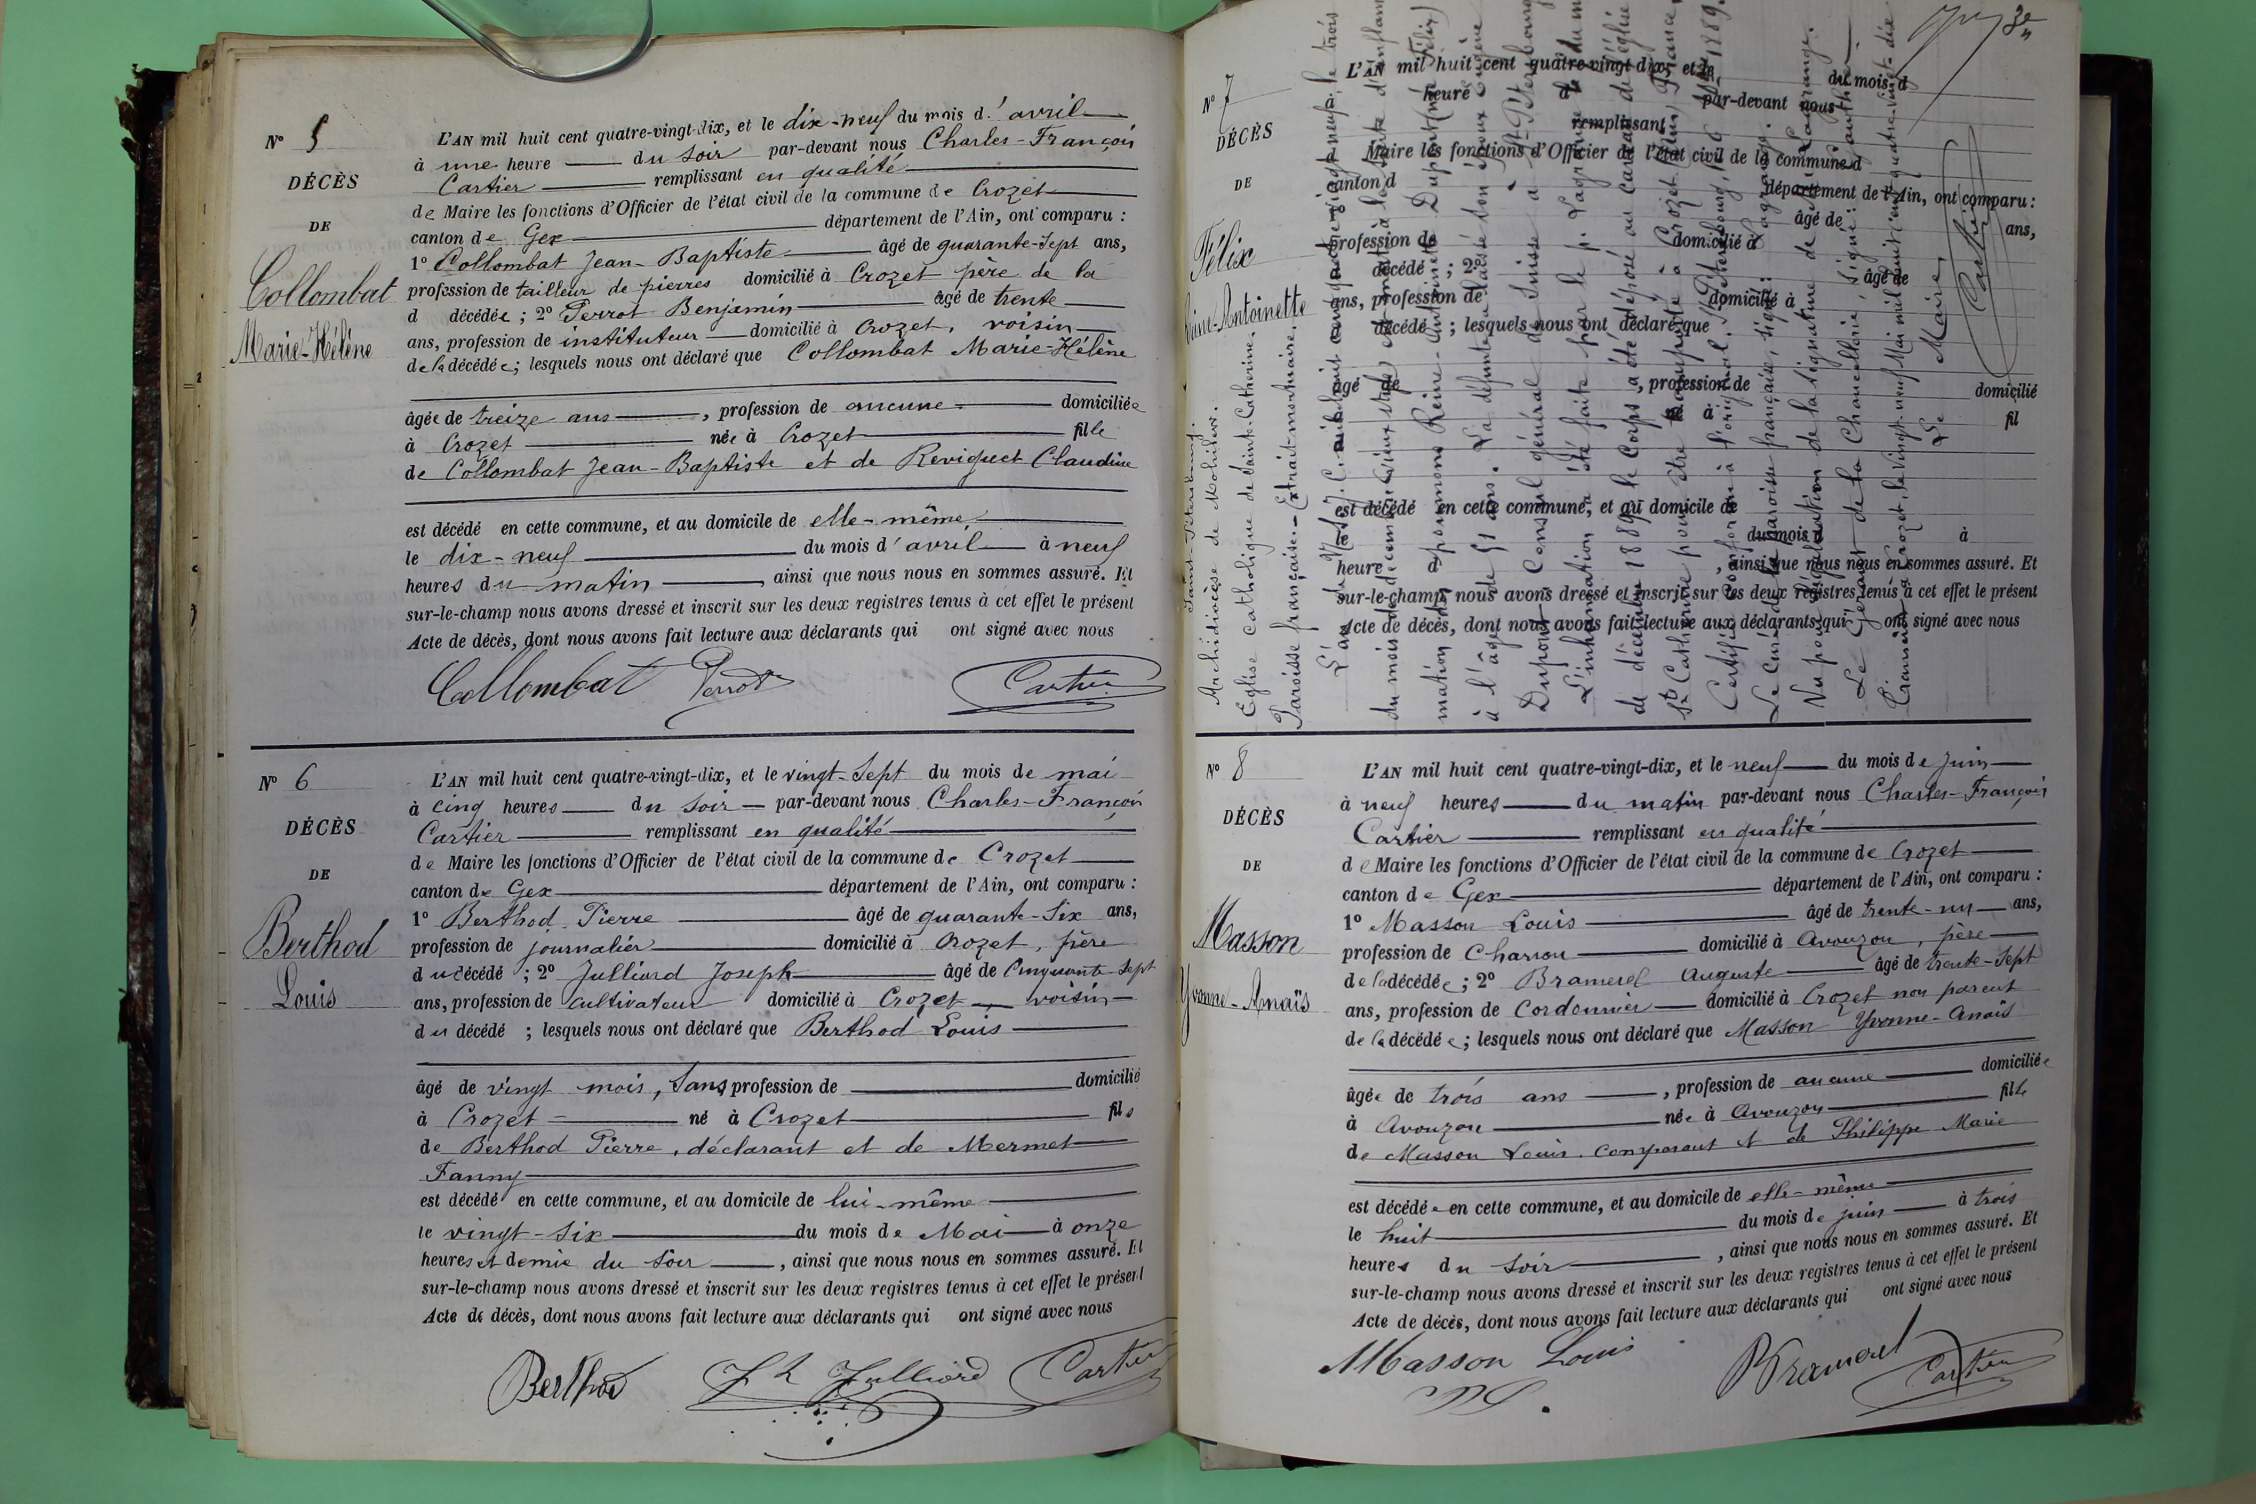 N° 5
DÉCÈS
DE
Collombat
Marie-Hélène
L'AN mil huit cent quatre-vingt-dix, et le dix-neuf du mois d'avril
à une heure du soir par-devant nous Charles-François
Cartier remplissant en qualité
de Maire les fonctions d'Officier de l'état civil de la commune de Crozet
canton de Gex département de l'Ain, ont comparu :
1° Collombat Jean-Baptiste âgé de quarante-sept ans,
profession de tailleur de pierres domicilié à Crozet père de la
d décédée ; 2° Perrot Benjamin âgé de trente
ans, profession de instituteur domicilié à Crozet, voisin
de la décédée ; lesquels nous ont déclaré que Collombat Marie-Hélène
âgée de treize ans, profession de aucune domiciliée
à Crozet née à Crozet fille
de Collombat Jean-Baptiste et de Reviquet Claudine
est décédé en cette commune, et au domicile de elle-même
le dix-neuf du mois d'avril à neuf
heures du matin, ainsi que nous nous en sommes assuré. Et
sur-le-champ nous avons dressé et inscrit sur les deux registres tenus à cet effet le présent
Acte de décès, dont nous avons fait lecture aux déclarants qui ont signé avec nous
Collombat Perrot Cartier
N° 6
DÉCÈS
DE
Berthod
Louis
L'AN mil huit cent quatre-vingt-dix, et le vingt-sept du mois de mai
à cinq heures du soir par-devant nous Charles-François
Cartier remplissant en qualité
de Maire les fonctions d'Officier de l'état civil de la commune de Crozet
canton de Gex département de l'Ain, ont comparu :
1° Berthod Pierre âgé de quarante-six ans,
profession de journalier domicilié à Crozet, père
du décédé ; 2° Julliard Joseph âgé de cinquante-sept
ans, profession de cultivateur domicilié à Crozet voisin
du décédé ; lesquels nous ont déclaré que Berthod Louis
âgé de vingt mois, sans profession de domicilié
à Crozet né à Crozet fils
de Berthod Pierre, déclarant et de Mermet
Fanny
est décédé en cette commune, et au domicile de lui-même
le vingt-six du mois de Mai à onze
heures et demie du soir, ainsi que nous nous en sommes assuré. Et
sur-le-champ nous avons dressé et inscrit sur les deux registres tenus à cet effet le présent
Acte de décès, dont nous avons fait lecture aux déclarants qui ont signé avec nous
Berthod Jh Julliard Cartier
3e
N° 7
DÉCÈS
DE
Félix
Reine-Antoinette
L'AN mil huit cent quatre-vingt-dix, et le du mois d
heure d par-devant nous
remplissant
d Maire les fonctions d'Officier de l'état civil de la commune d
canton d département de l'Ain, ont comparu :
âgé de ans,
profession de domicilié à
décédé ; 2° âgé de
ans, profession de domicilié à
décédé ; lesquels nous ont déclaré que
âgé de , profession de domicilié
à né à fil
est décédé en cette commune, et au domicile de
le du mois d à
heure d , ainsi que nous nous en sommes assuré. Et
sur-le-champ nous avons dressé et inscrit sur les deux registres tenus à cet effet le présent
Acte de décès, dont nous avons fait lecture aux déclarants qui ont signé avec nous
Archidiocèse de Mohilew. Saint-Pétersbourg.
Eglise catholique de Sainte-Catherine
Paroisse française. Extrait mortuaire.
L'an du N. S. J. C. mil huit cent quatre-vingt-neuf, le trois
du mois de décembre (vieux style) est morte à la suite d'inflam
mation de poumons Reine-Antoinette Dupont (née Félix)
à l'âge de 51 ans. La défunte a laissé son époux Eugène
Dupont Consul général de Suisse à St Pétersbourg
L'inhumation a été faite par le p. Lagrange le du m
de décembre 1889 le corps a été déposé au caveau de l'église
Ste Catherine pour être transporté à Crozet (Ain) France.
Certifié conforme à l'original. St Pétersbourg, 1889.
Le Curé de la paroisse française, signé: Lagrange.
Vu pour légalisation de la signature de Mr Lagrange.
Le Gérant de la Chancellerie, signé: Gauthier
Transcrit à Crozet, le vingt-neuf Mai mil huit cent quatre-vingt-dix
Le Maire,
Cartier
N° 8
DÉCÈS
DE
Masson
Yvonne-Anaïs
L'AN mil huit cent quatre-vingt-dix, et le neuf du mois de juin
à neuf heures du matin par-devant nous Charles-François
Cartier remplissant en qualité
de Maire les fonctions d'Officier de l'état civil de la commune de Crozet
canton de Gex département de l'Ain, ont comparu :
1° Masson Louis âgé de trente-un ans,
profession de Charron domicilié à Avouzon, père
de la décédée ; 2° Bramerel Auguste âgé de trente-sept
ans, profession de Cordonnier domicilié à Crozet non parent
de la décédée ; lesquels nous ont déclaré que Masson Yvonne-Anaïs
âgée de trois ans, profession de aucune domiciliée
à Avouzon née à Avouzon fille
de Masson Louis, comparant et de Philippe Marie
est décédée en cette commune, et au domicile de elle-même
le huit du mois de juin à trois
heures du soir, ainsi que nous nous en sommes assuré. Et
sur-le-champ nous avons dressé et inscrit sur les deux registres tenus à cet effet le présent
Acte de décès, dont nous avons fait lecture aux déclarants qui ont signé avec nous
Masson Louis Bramerel Cartier